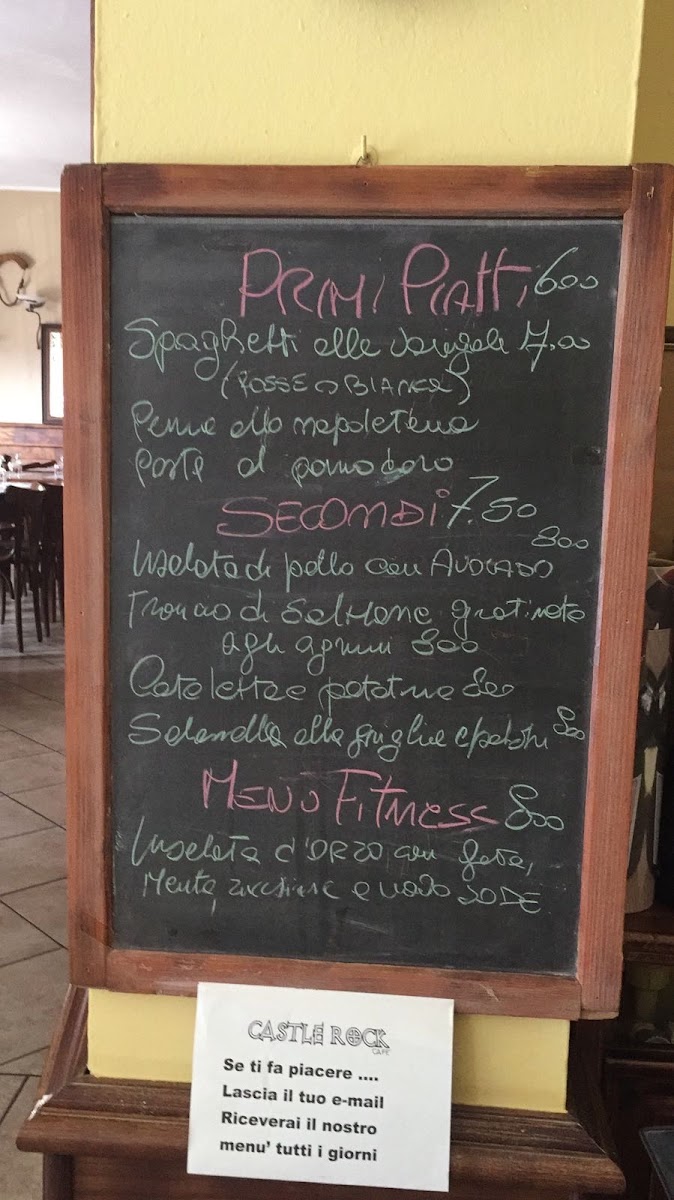 PRIMI PIATTI 600
Spaghetti alle vongole 7,00
(ROSSE O BIANCHE)
Penne alla napoletana
Pasta al pomodoro
SECONDI 7.50
Insalata di pollo con AVOCADO 800
Trancio di Salmone gratinato
agli agrumi 800
Cotoletta e patatine 800
Salamella alla griglia e patatine 800
MENU FITNESS 800
Insalata d'ORZO con feta,
Menta, zucchine e uovo SODE
CASTLE ROCK
CAFE'
Se ti fa piacere ....
Lascia il tuo e-mail
Riceverai il nostro
menu' tutti i giorni